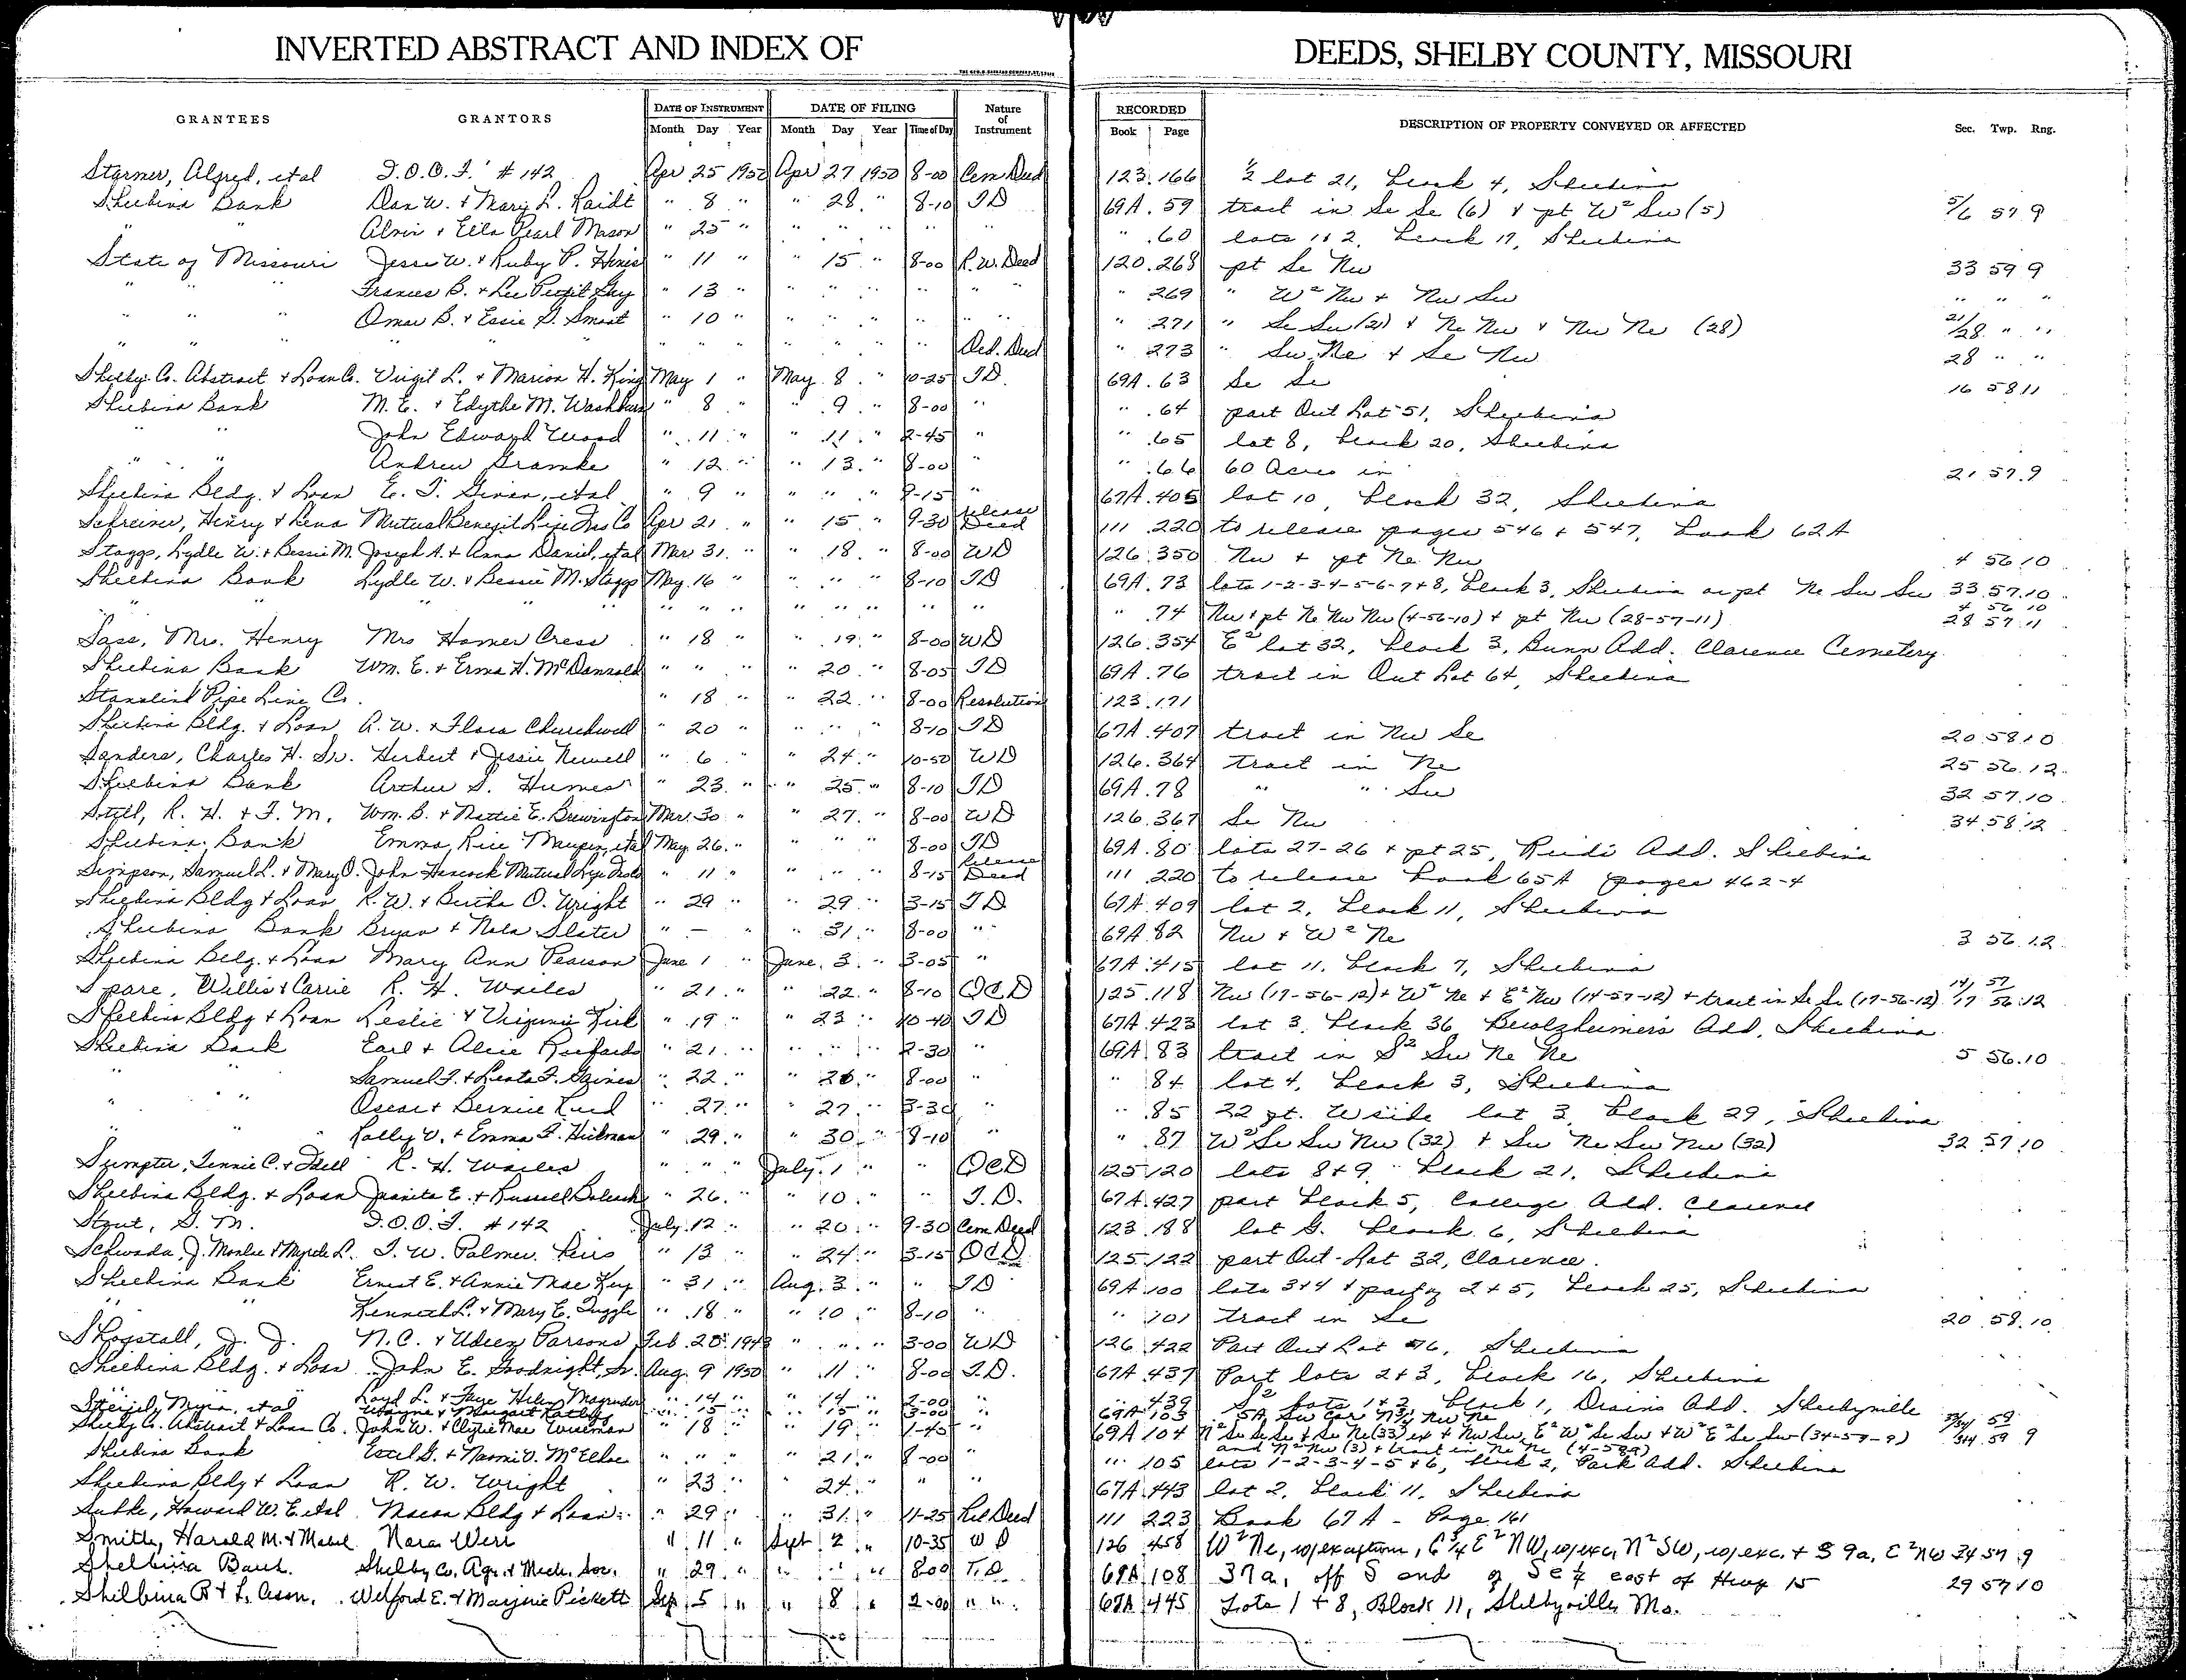 INVERTED ABSTRACT AND INDEX OF DEEDS, SHELBY COUNTY, MISSOURI
GRANTEES GRANTORS DATE OF INSTRUMENT Month Day Year DATE OF FILING Month Day Year Time of Day Nature of Instrument RECORDED Book Page DESCRIPTION OF PROPERTY CONVEYED OR AFFECTED Sec. Twp. Rng.
Starmer, Alfred, etal I.O.O.F. #142 Apr 25 1950 Apr 27 1950 8-00 Cem Deed 123 166 ½ lot 21, block 4, Shelbina
Shelbina Bank Dan W. + Mary L. Raidt " 8 " " 28 " 8-10 TD 69A 59 tract in Se Se (6) + pt W² Sw (5) 5/6 57 9
" " Alvin + Ella Pearl Mason " 25 " " " " " " " 60 lots 1 + 2, block 17, Shelbina
State of Missouri Jesse W. + Ruby P. Hines " 11 " " 15 " 8-00 R.W. Deed 120 268 pt Se Nw 33 59 9
" " " Frances B. + Lee Pettit " 13 " " " " " " " " 269 " W² Nw + Nw Sw " " "
" " " Omar B. + Essie G. Smoot " 10 " " " " " " " " 271 " Se Sw (21) + Ne Nw + Nw Ne (28) 21/28 " "
" " " " " " " " " " " " Ded. Deed " 273 " Sw Ne + Se Nw 28 " "
Shelby Co. Abstract + Loan Co. Virgil L. + Marion H. King May 1 " May 8 " 10-25 TD 69A 63 Se Se 16 58 11
Shelbina Bank M. E. + Edythe M. Washburn " 8 " " 9 " 8-00 " " 64 part Out Lot 51, Shelbina
" " John Edward Wood " 11 " " 11 " 2-45 " " 65 lot 8, block 20, Shelbina
" " Andrew Gramke " 12 " " 13 " 8-00 " " 66 60 Acres in 21 57 9
Shelbina Bldg. + Loan E. T. Givan, etal " 9 " " " " 9-15 " 67A 405 lot 10, block 32, Shelbina
Schreiner, Henry + Lena Mutual Benefit Life Ins Co Apr 21 " " 15 " 9-30 release Deed 111 220 to release pages 546 + 547, book 62A
Staggs, Lydle W. + Bessie M. Joseph A. + Anna Daniel, etal Mar 31 " " 18 " 8-00 WD 126 350 Nw + pt Ne Nw 4 56 10
Shelbina Bank Lydle W. + Bessie M. Staggs May 16 " " " " 8-10 TD 69A 73 lots 1-2-3-4-5-6-7+8, block 3, Shelbina on pt Ne Sw Sw 33 57 10
" " " " " " " " " " " " " 74 Nw + pt Ne Nw Nw (4-56-10) + pt Nw (28-57-11) 4 56 10 28 57 11
Sass, Mrs. Henry Mrs Homer Cress " 18 " " 19 " 8-00 WD 126 354 E² lot 32, block 3, Bunn Add. Clarence Cemetery
Shelbina Bank Wm. E. + Erma H. McDannold " " " " 20 " 8-05 TD 69A 76 tract in Out Lot 64, Shelbina
Stanolind Pipe Line Co. " 18 " " 22 " 8-00 Resolution 123 171
Shelbina Bldg. + Loan A. W. + Flora Churchwell " 20 " " " " 8-10 TD 67A 407 tract in Nw Se 20 58 10
Sanders, Charles H. Sr. Herbert + Jessie Newell " 6 " " 24 " 10-50 WD 126 364 tract in Ne 25 56 12
Shelbina Bank Arthur S. Humes " 23 " " 25 " 8-10 TD 69A 78 " " Sw 32 57 10
Still, R. H. + F. M. Wm. B. + Nettie E. Brewington Mar. 30 " " 27 " 8-00 WD 126 367 Se Nw 34 58 12
Shelbina Bank Emma Rice Maupin, etal May 26 " " " " 8-00 TD 69A 80 lots 27-26 + pt 25, Reids Add. Shelbina
Simpson, Samuel L. + Mary O. John Hancock Mutual Life Ins Co " 11 " " " " 8-15 Release Deed 111 220 to release book 65A pages 462-4
Shelbina Bldg + Loan R. W. + Bertha O. Wright " 29 " " 29 " 3-15 TD 67A 409 lot 2, block 11, Shelbina
Shelbina Bank Bryan + Nola Slater " - " " 31 " 8-00 " 69A 82 Nw + W² Ne 3 56 12
Shelbina Bldg. + Loan Mary Ann Pearson June 1 " June 3 " 3-05 " 67A 415 lot 11, block 7, Shelbina
Spare, Willis + Carrie R. H. Wailes " 21 " " 22 " 8-10 QCD 125 118 Nw (17-56-12) + W² Ne + E² Nw (14-57-12) + tract in Se Se (17-56-12) 14/17 57/56 12
Shelbina Bldg + Loan Leslie + Virginia Kirk " 19 " " 23 " 10-40 TD 67A 423 lot 3, block 36, Bewolzheimer's Add, Shelbina
Shelbina Bank Earl + Alice " 21 " " " " 2-30 " 69A 83 tract in S² Sw Ne Ne 5 56 10
" " Samuel F. + Leota F. Gaines " 22 " " 26 " 8-00 " " 84 lot 4, block 3, Shelbina
" " Oscar + Bernice " 27 " " 27 " 3-30 " " 85 22 ft. W side lot 3, block 29, Shelbina
" " Rolly V. + Emma F. Hickman " 29 " " 30 " 8-10 " " 87 W² Se Sw Nw (32) + Sw Ne Sw Nw (32) 32 57 10
Sumpter, Tennie C. + Idell R. H. Wailes " " " July 1 " " QCD 125 120 lots 8 + 9, block 21, Shelbina
Shelbina Bldg. + Loan Juanita E. + Russell " 26 " " 10 " " T.D. 67A 427 part block 5, College Add. Clarence
Stout, G. M. I.O.O.F. #142 July 12 " " 20 " 9-30 Cem Deed 123 188 lot G. block 6, Shelbina
Schwada, J. Monlee + Myrtle L. T. W. Palmer heirs " 13 " " 24 " 3-15 QCD 125 122 part Out-Lot 32, Clarence.
Shelbina Bank Ernest E. + Annie Mae Key " 31 " Aug. 3 " " TD 69A 100 lots 3+4 + part of 2+5, block 25, Shelbina
" " Kenneth L. + Mary E. Tuggle " 18 " " 10 " 8-10 " " 101 tract in Se 20 58 10
J. J. N. C. + Udeen Parsons Feb. 20 1943 " " " 3-00 WD 126 422 Part Out Lot 76, Shelbina
Shelbina Bldg. + Loan John E. Goodnight, Sr. Aug. 9 1950 " 11 " 8-00 T.D. 67A 437 Part lots 2+3, block 16, Shelbina
" " Loyd L. + Faye Helen Magruder " 14 " " 14 " 2-00 " " 439 S² lots 1+2, block 1, Drains Add. Shelbyville
Steigel, Myra, etal + Margaret " 15 " " 15 " 3-00 " 69A 103 5A Sw cor N¾ Nw Ne
Shelby Co. Abstract + Loan Co. John W. + Clytie Mae Wiseman " 18 " " 19 " 1-45 " 69A 104 N² Se Se Se + Se Ne (33) ex + Nw Sw, E² W² Se Sw + W² E² Se Sw (34-59-9) 59 9
and N² Nw (3) + tract in Ne Ne (4-58-9)
Shelbina Bank Estil G. + Naomi V. McElroe " " " " 21 " 8-00 " " 105 lots 1-2-3-4-5+6, block 2, Park Add. Shelbina
Shelbina Bldg + Loan R. W. Wright " 23 " " 24 " " " 67A 443 lot 2, block 11, Shelbina
Howard W. Etal Macon Bldg + Loan " 29 " " 31 " 11-25 Rel Deed 111 223 Book 67A - Page 161
Smith, Harold M. + Mabel Nora Werr " 11 " Sept 2 " 10-35 WD 126 458 W² Ne, w/exception, E¾ E² NW, w/exc, N² SW, w/exc. + S 9a, E² NW 34 57 9
Shelbina Bank. Shelby Co. Agr. + Mech. Soc. " 29 " " " " 8-00 T.D. 69A 108 37a, off S end of Se ¼ east of Hwy 15 29 57 10
Shelbina B + L Assn. Welford E. + Marjorie Pickett Sep 5 " " 8 " 2-00 " " 67A 445 Lots 1 + 8, Block 11, Shelbyville, Mo.